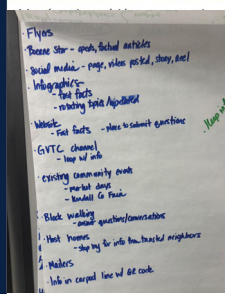 · Flyers
· Boerne Star - opeds, factual articles
· Social media - page, videos posted, story, reel
· Infographics -
- fast facts
- rotating topics/updated
· Website
- Fast facts - place to submit questions
· GVTC channel
- loop w/ info
· existing community events
- market days
- Kendall Co Fair
· Block walking
- answer questions/conversations
· Host homes
- stop by for info from trusted neighbors
· Mailers
· Info in carpool line w/ QR code